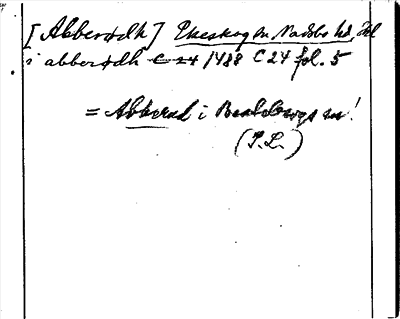 [Abberydh] Ekeskog sn Vadsbo hd, Vkl
i abberydh C 24 1488 C 24 fol. 5
= Abberud i Beatebergs sn!
(I.L.)